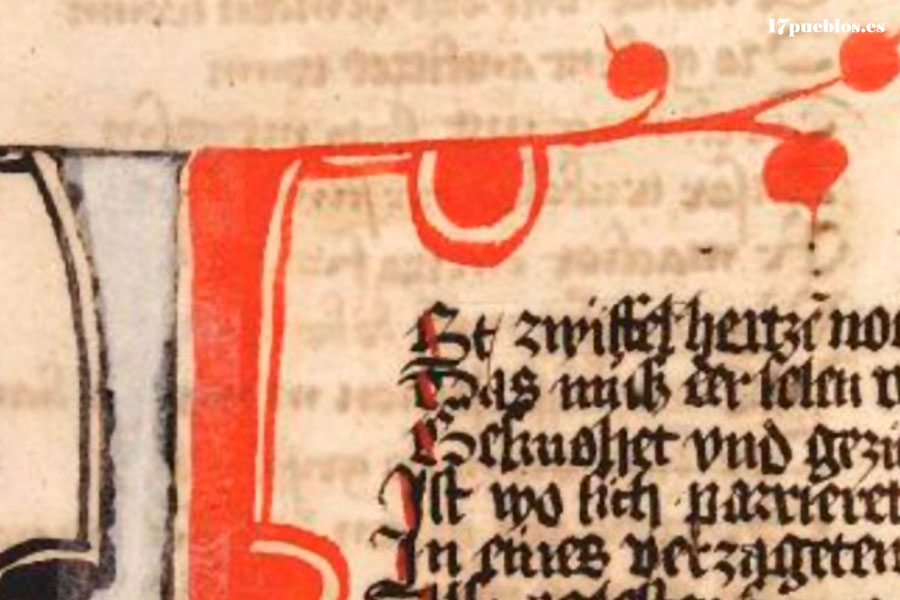 17pueblos.es
St zwiffel hertzē noc
Das müß der selen w
Gesmehet vnd gezi
Ist wo sich parrieret
In eines verzageten